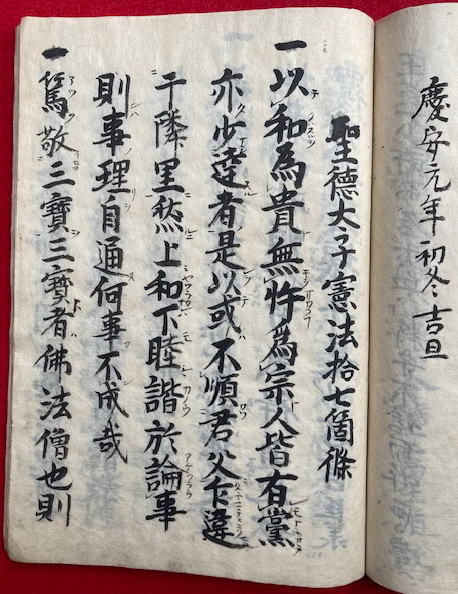 慶安元年初冬吉旦
聖德大子憲法拾七箇條
一以和為貴無忤爲宗人皆有黨
亦少達者是以或不順君父乍違
于隣里然上和下睦諧於論事
則事理自通何事不成哉
一篤敬三寶三寶者佛法僧也則